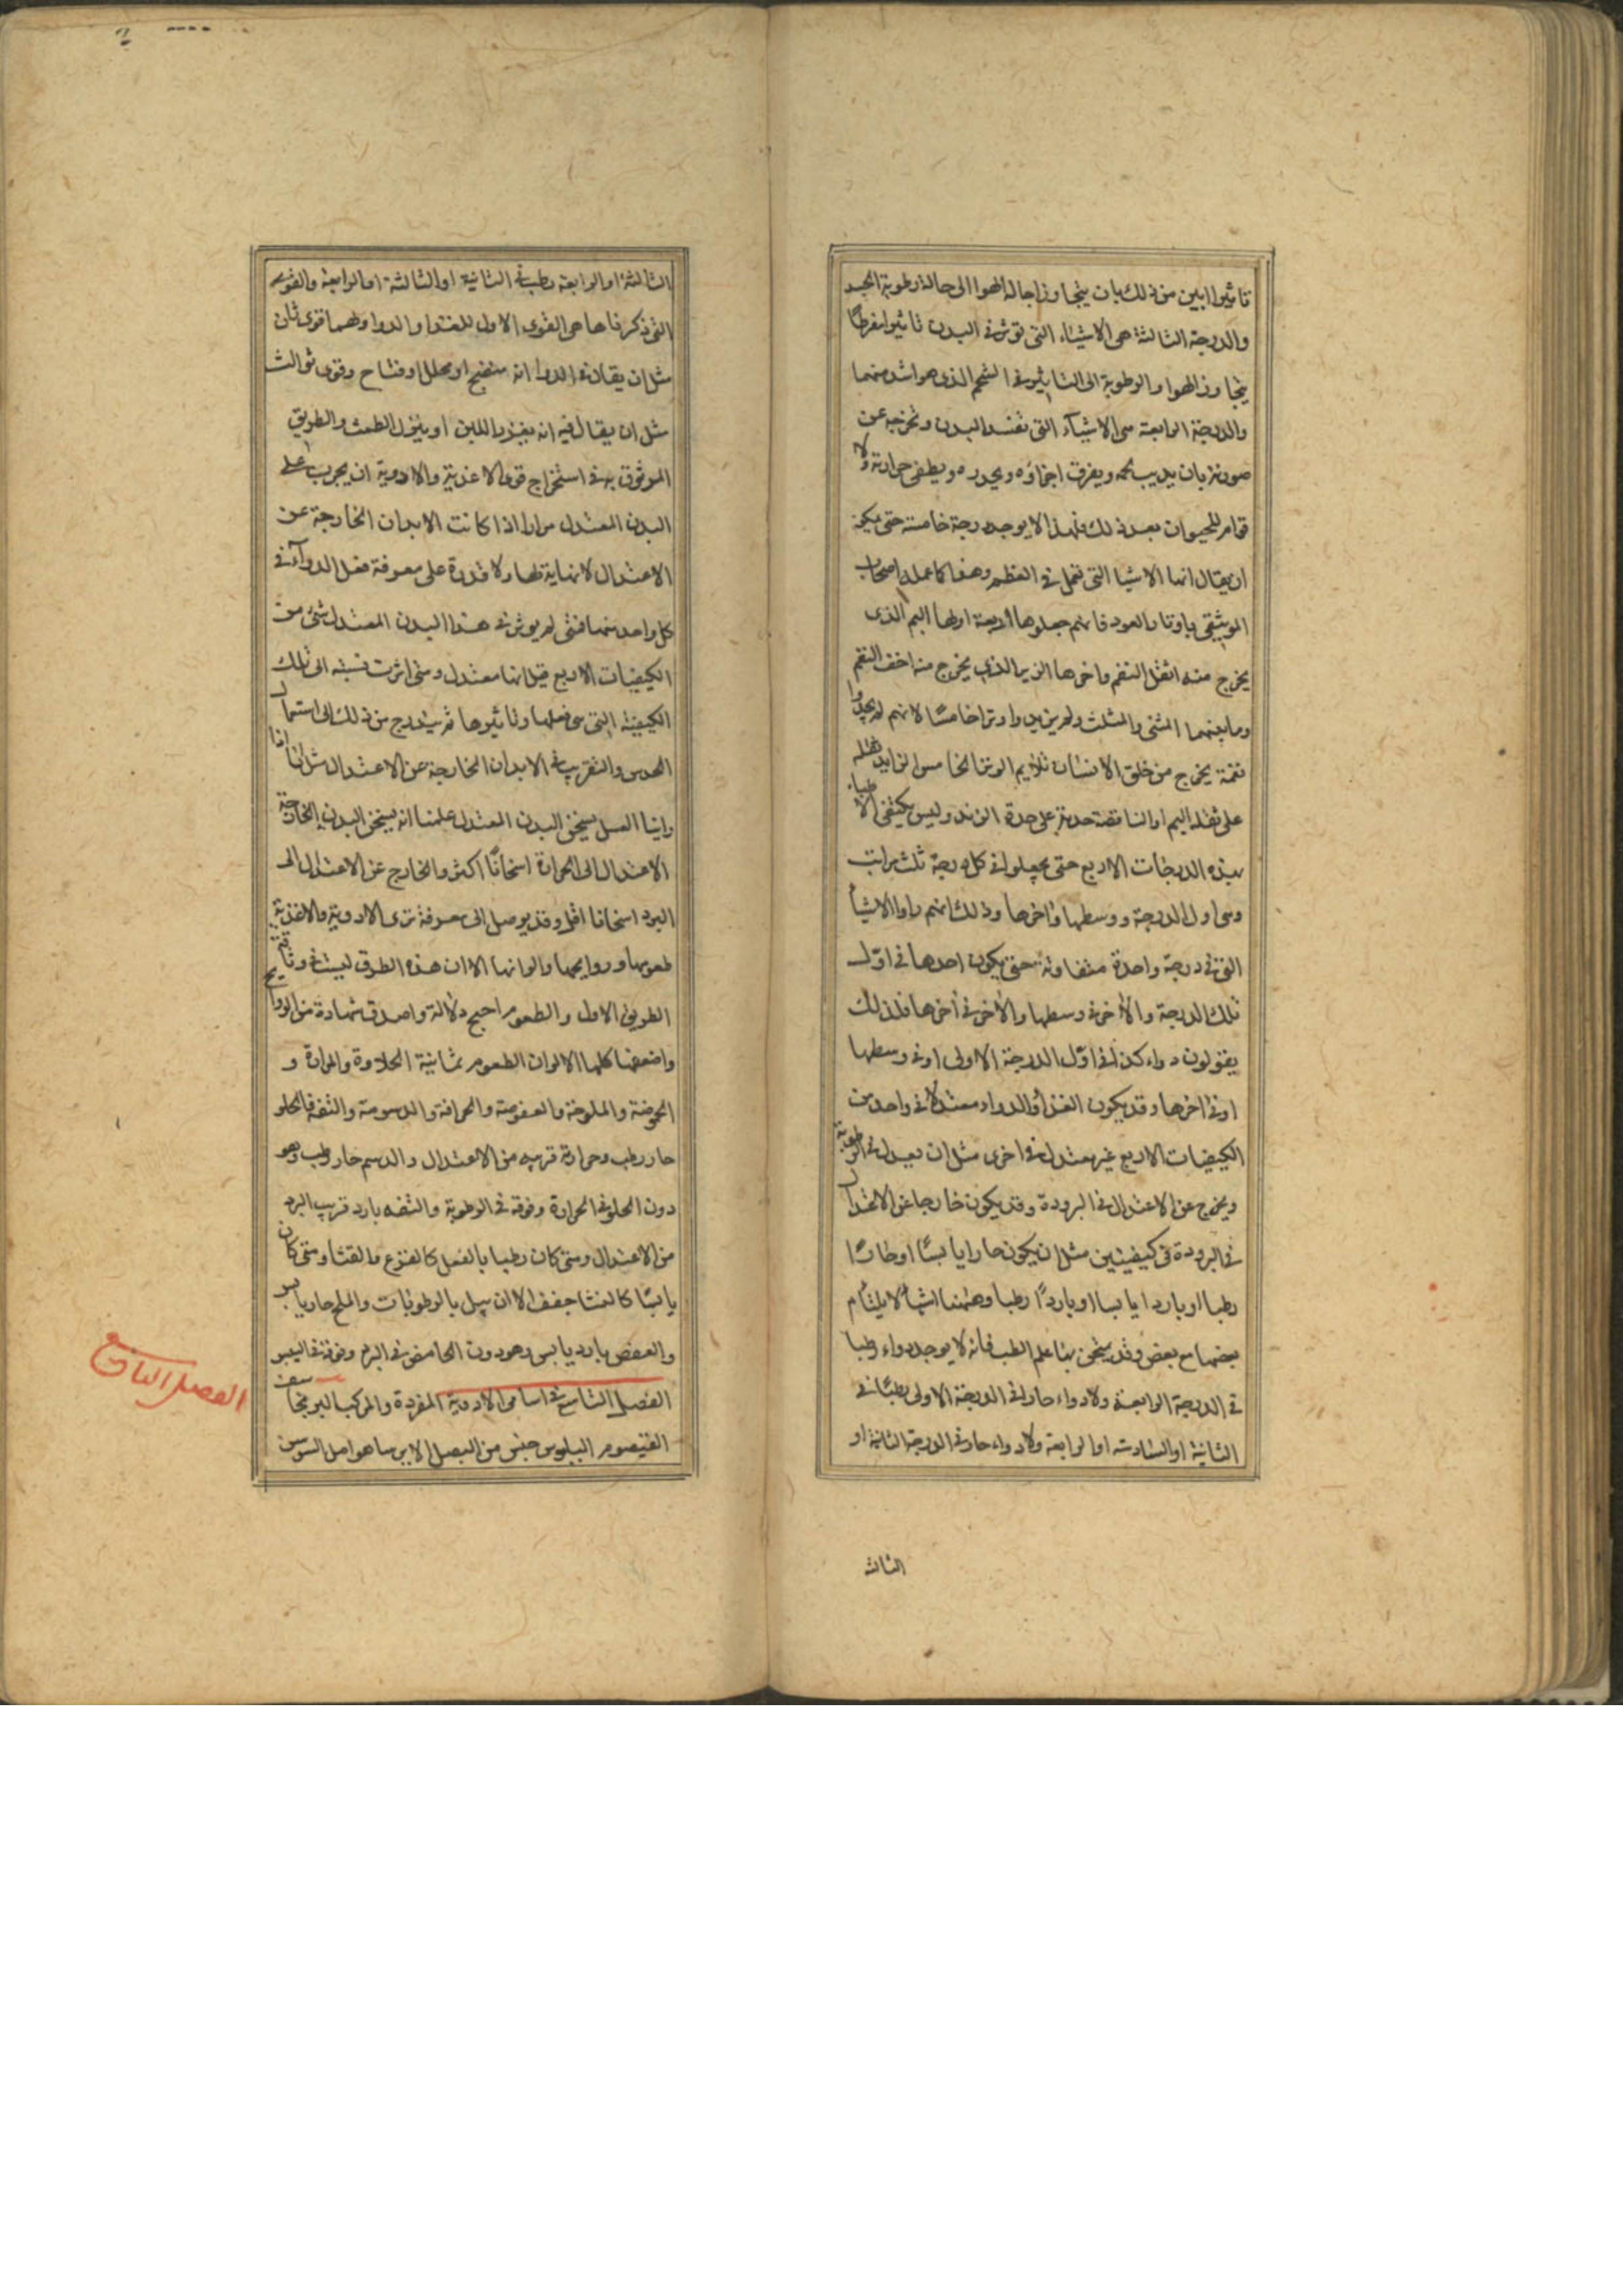 تاثيرا ابين من ذلك بان يتجاوز احالة الهوا الى حالة رطوبة الجسد
والدرجة الثالثة هى الاشياء التى توثر فى البدن تاثيرا مفرطا
يتجاوز الهوا والرطوبة الى التاثير فى الشحم الذى هو اشد منهما
والدرجة الرابعة هى الاشيآء التى تفسد البدن وتخرجه عن
صورته بان يذيب لحمه ويفرق اجزاؤه ويخدره ويطفى حرارته ولا
قوام للحيوان بعد ذلك فلهذا لا يوجد درجة خامسة حتى يمكن
ان يقال انها الاشيا التى تعمل فى العظم وهذا كما عمله اصحاب
الموسيقى باوتار العود فانهم جعلوها اربعة اولها البم الذى
يخرج منه اثقل النغم واخرها الزير الذى يخرج منه اخف النغم
وما بينهما المثنى والمثلث ولم يزيدوا وترا خامسا لانهم لم يجدوا
نغمة يخرج من خلق الانسان تلايم الوتر الخامس الزايد ثقله
على ثقل البم او الناقصة حدته على حدة الزند وليس يكتفى الاطباء
بهذه الدرجات الاربع حتى يجعلوا فى كل درجة ثلث مراتب
وهى اول الدرجة ووسطها واخرها وذلك انهم راوا الاشيأ
التى فى درجة واحدة متفاوتة حتى يكون احدها فى اوّل
تلك الدرجة والأخر فى وسطها والأخر فى أخرها فلذلك
يقولون دواء كذا فى اوّل الدرجة الاولى او فى وسطها
او فى اخرها وقد يكون الغذأ والدواء معتدلا فى واحد من
الكيفيات الاربع غير معتدل فى اخرى مثل ان يعدل فى الرطوبة
ويخرج عن الاعتدال فى البرودة وقد يكون خارجا عن الاعتدال
فى البرودة فى كيفيتين مثل ان يكون حارا يابسًا او حارًا
رطبا او باردا يابسا او باردًا رطبا وههنا اشيأ لا يلتأم
بعضها مع بعض وقد يختص بها علم الطب فانه لا يوجد دواء رطبا
فى الدرجة الرابعة ولا دواء حار فى الدرجة الاولى رطبًا فى
الثانية او الثالثة او الرابعة ولا دواء حار فى الدرجة الثانية او
الثالثه
الثالثة او الرابعة رطب فى الثانية او الثالثة او الرابعة والقوى
التى ذكرناها هى القوى الاول للغذا والدوا ولهما قوى ثان
مثل ان يقال فى الدوا انه منضج او محلل او فتاح وقوى ثوالث
مثل ان يقال فيه انه يغزر اللبن او ينزل الطمث والطريق
الموثوق به فى استخراج قوى الاغذية والادوية ان يجرب على
البدن المعتدل مرارا اذا كانت الابدان الخارجة عن
الاعتدال لانهاية لها ولا قدرة على معرفة فعل الدوآء فى
كل واحد منها فمتى لم يوثر فى هذا البدن المعتدل شئ من
الكيفيات الاربع قيل انها معتدل ومتى اثرت نسبته الى تلك
الكيفية التى هى فعلها وتاثيرها ثم يتدرج من ذلك الى استعمال
الحدس والتقريب فى الابدان الخارجة عن الاعتدال مثل انا اذا
راينا العسل يسخن البدن المعتدل علمنا انه يسخن البدن الخارجة
الاعتدال الى الحرارة اسخانًا اكثر والخارج عن الاعتدال الى
البرد اسخانا اقل وقد يوصل الى معرفة قوى الادوية والاغذية
طعومها وروايحها والوانها الا ان هذه الطرق ليست فى وثاقة
الطريق الاول والطعوم احج دلالة واصدق شهادة من الروايح
واضعفها كلها الالوان الطعوم ثمانية الحلاوة والمرارة و
الحموضة والملوحة والعفوصة والحرافة والدسومة والتفه فالحلو
حار رطب وحرارته قريب من الاعتدال والدسم حار رطب وهو
دون الحلو فى الحرارة وفوقه فى الرطوبة والتفه بارد قريب البرد
من الاعتدال ومتى كان رطبا بالفعل كالقرع والقثا ومتى كان
يابسًا كالنشا جفف الا ان يبل بالرطوبات والملح حار يابس
والعفص بارد يابس وهو دون الحامض فى البرد وفوقه فى اليبس
الفصل التاسع فى اسامى الادوية المفردة والمركبة البرنجاسف
القيصوم البلبوس جنس من البصل الايرسا هو اصل السوسن
الفصل التاسع